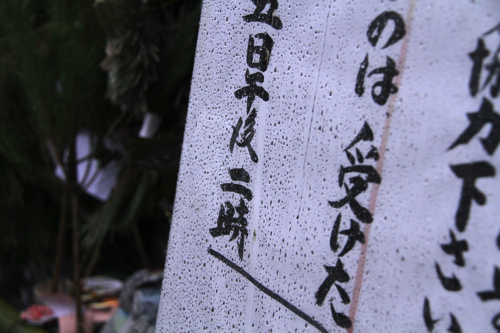 協力下さい
のは受けた
五日午後二時